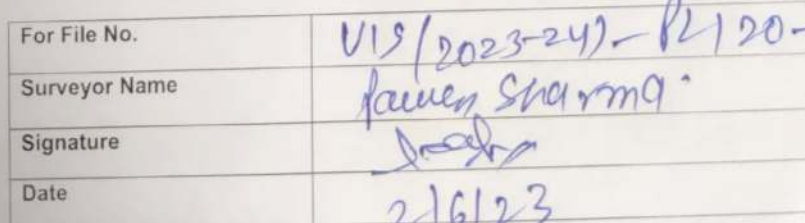 For File No. VIS (2023-24) - PL120-
Surveyor Name Sharma
Signature
Date 2/6/23